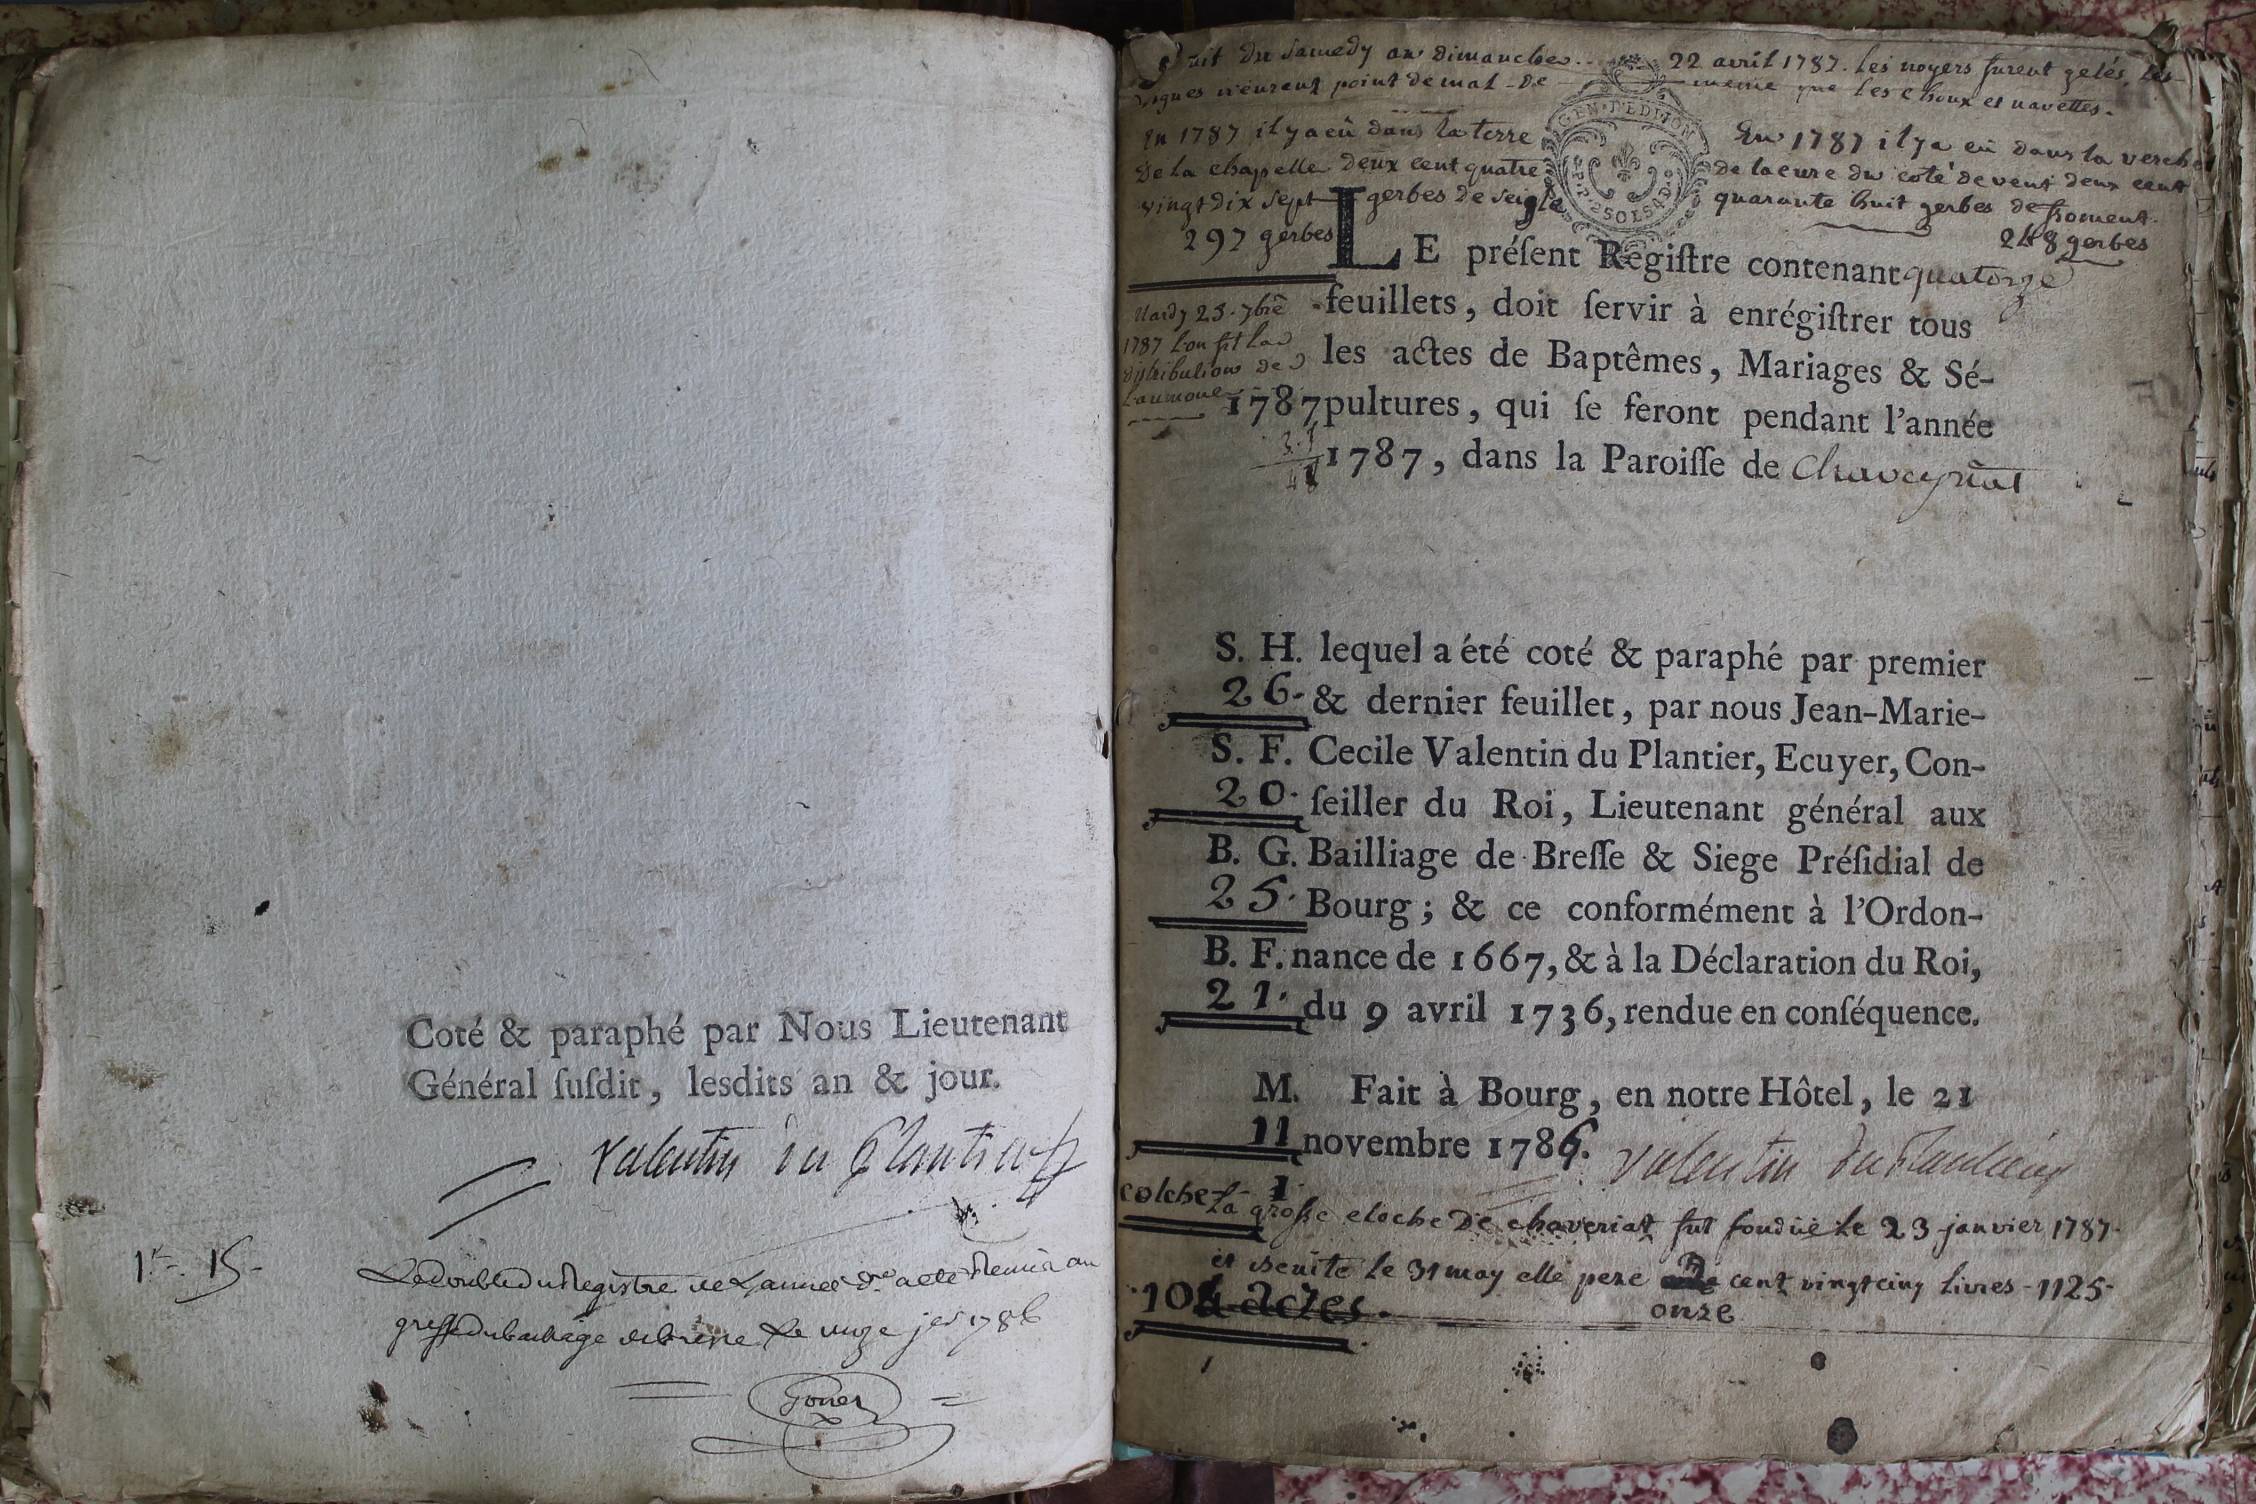 Coté & paraphé par Nous Lieutenant
Général ſuſdit, lesdits an & jour.
Valentin du Plantier
1.re. 15.
Le double du Registre de L'année
greffe du bailliage de bresse Le onze
nuit du Samedy au dimanche.. 22 avril 1787. les noyers furent gelés, les
vignes n'eurent point de mal - de même que les choux et navettes.
En 1787 il y a eû dans la terre
de la chapelle deux cent quatre
vingt dix sept gerbes de seigle
297 gerbes
En 1787 il y a eû dans la verchere
de la cure du coté de vent deux cent
quarante huit gerbes de froment.
248 gerbes
GEN. D. DIJON
2 SOLS 4 D.
LE préſent Regiſtre contenant quatorze
feuillets, doit ſervir à enrégiſtrer tous
les actes de Baptêmes, Mariages & Sé-
pultures, qui ſe feront pendant l'année
1787, dans la Paroiſſe de Chaveyriat
Mardy 25. 7bre
1787 l'on fit la
distribution de
l'aumone
1787
S. H. lequel a été coté & paraphé par premier
26. & dernier feuillet, par nous Jean-Marie-
S. F. Cecile Valentin du Plantier, Ecuyer, Con-
20. ſeiller du Roi, Lieutenant général aux
B. G. Bailliage de Breſſe & Siege Préſidial de
25. Bourg; & ce conformément à l'Ordon-
B. F. nance de 1667, & à la Déclaration du Roi,
21. du 9 avril 1736, rendue en conſéquence.
M. Fait à Bourg, en notre Hôtel, le 21
11 novembre 1786. Valentin du Plantier
colche 1.
La grosse cloche de chaveriat fut fondüe le 23 janvier 1787.
et Benite le 31 may elle pese cent vingt cinq livres - 1125-
onze
104 actes.